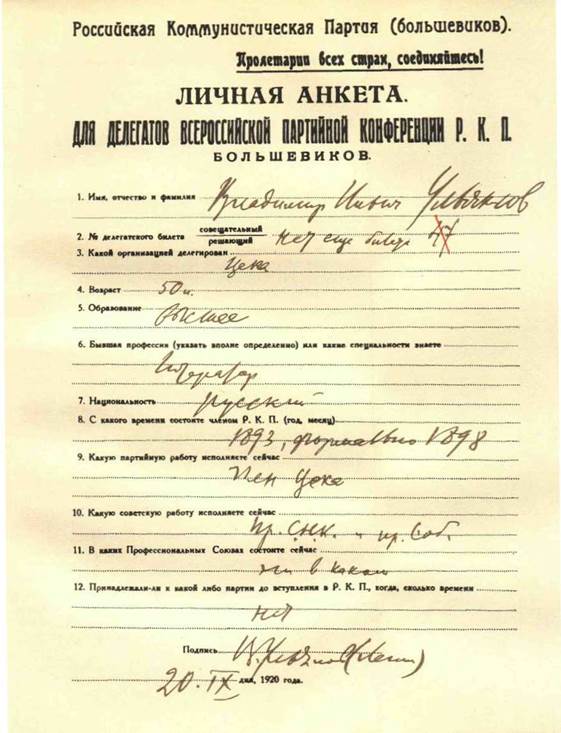 Российская Коммунистическая Партия (большевиков).
Пролетарии всех стран, соединяйтесь!
ЛИЧНАЯ АНКЕТА.
ДЛЯ ДЕЛЕГАТОВ ВСЕРОССИЙСКОЙ ПАРТИЙНОЙ КОНФЕРЕНЦИИ Р. К. П.
БОЛЬШЕВИКОВ.
1. Имя, отчество и фамилия Владимир Ильич Ульянов
2. № делегатского билета совещательный решающий нет еще билета
3. Какой организацией делегирован
Цека
4. Возраст 50 л.
5. Образование
высшее
6. Бывшая профессия (указать вполне определенно) или какие специальности знаете
литератор
7. Национальность русский
8. С какого времени состоите членом Р. К. П. (год, месяц)
1893, формально 1898
9. Какую партийную работу исполняете сейчас
член Цека
10. Какую советскую работу исполняете сейчас
пр. С.Н.К. и пр. Соб.
11. В каких Профессиональных Союзах состоите сейчас
ни в каком
12. Принадлежали-ли к какой либо партии до вступления в Р. К. П., когда, сколько времени
нет
Подпись В. Ульянов (Ленин)
20. IX дня, 1920 года.